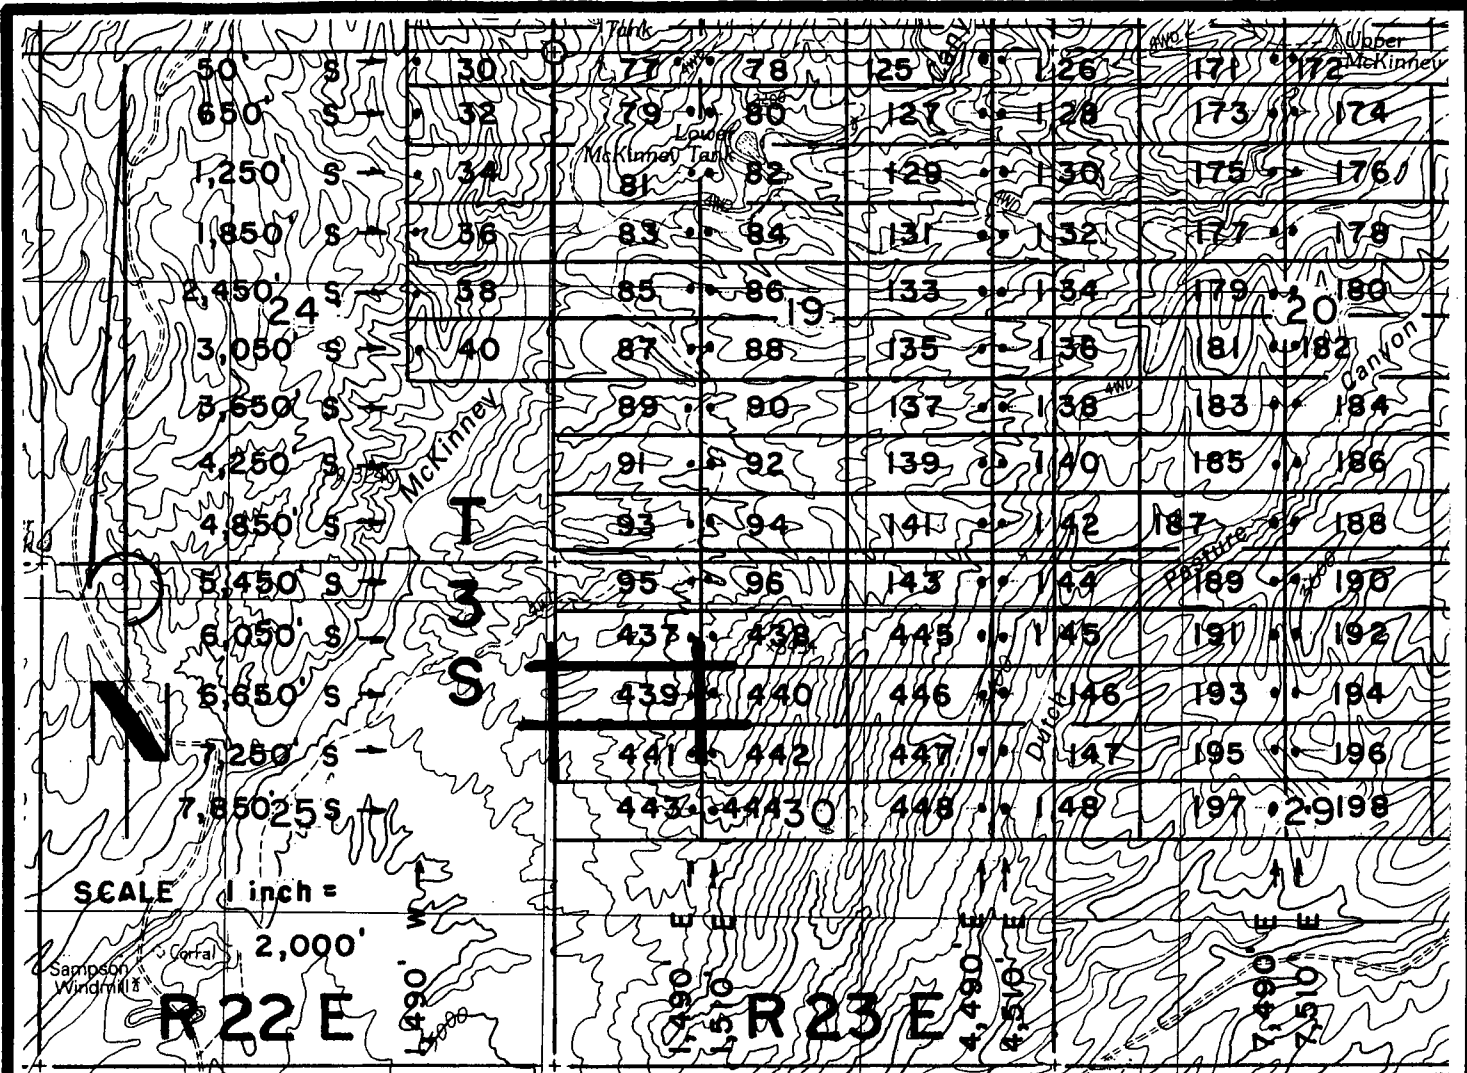 Tank Upper
4WD
50' S → 30 77 4WD 78 125 126 171 172 McKinney
650' S → 32 79 80 127 128 173 174
Lower
McKinney Tank
1,250' S → 34 81 82 129 130 175 176
4WD 4WD
1,850' S → 36 83 84 131 132 177 178
2,450' S → 38 85 86 133 134 179 180
24 19 20
3,050' S → 40 87 88 135 136 181 182
Canyon
4WD
3,650' S → 89 90 137 138 183 184
McKinney
4,250' S → 91 92 139 140 185 186
T
4,850' S → 93 94 141 142 187 188
Pasture
5,450' S → 95 96 143 144 189 190
3
6,050' S → 437 438 445 145 191 192
S
6,650' S → 439 440 446 146 193 194
Dutch
N
7,250' S → 441 442 447 147 195 196
7,850' S → 443 444 448 148 197 198
25 30 29
SCALE 1 inch =
2,000'
Corral
Sampson
Windmill
1,490' W
1,490' E
1,510' E
4,490' E
4,510' E
7,490' E
7,510' E
R 22 E R 23 E
4000